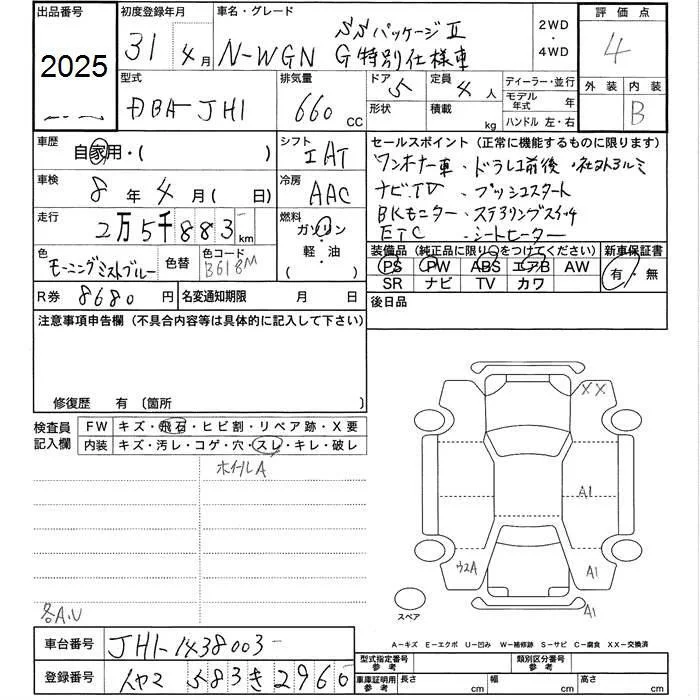 出品番号 初度登録年月 車名・グレード 評価点
2025 31 4月 N-WGN SSパッケージⅡ G特別仕様車 2WD・4WD 4
型式 排気量 ドア 5 定員 4人 ディーラー・並行 外装 内装
DBA-JH1 660 CC 形状 積載 kg モデル年式 年 B
ハンドル 左・右
車歴 自家用・( ) シフト IAT セールスポイント (正常に機能するものに限ります)
ワンオーナー車・ドラレコ前後・社外アルミ
車検 8年 4月 ( 日) 冷房 AAC ナビ.TV・プッシュスタート
走行 2万5千883 km 燃料 ガソリン・軽・油 ( ) BKモニター・ステアリングスイッチ
ETC・シートヒーター
色 モーニングミストブルー 色替 色コード B618M
装備品 (純正品に限り○をつけてください) 新車保証書
PS PW ABS エアB AW 有・無
SR ナビ TV カワ
R券 8680円 名変通知期限 月 日 後日品
注意事項申告欄 (不具合内容等は具体的に記入して下さい)
修復歴 有 〔箇所 〕
検査員記入欄 FW キズ・飛石・ヒビ割・リペア跡・X要
内装 キズ・汚レ・コゲ・穴・スレ・キレ・破レ
ホイルA
XX
A1
A1
A1
スペア
各A.U
A-キズ E-エクボ U-凹み W-補修跡 S-サビ C-腐食 XX-交換済
車台番号 JH1-1438003
型式指定番号 参考 類別区分番号 参考
登録番号 583き2960
車庫証明用 参考 長さ cm 幅 cm 高さ cm